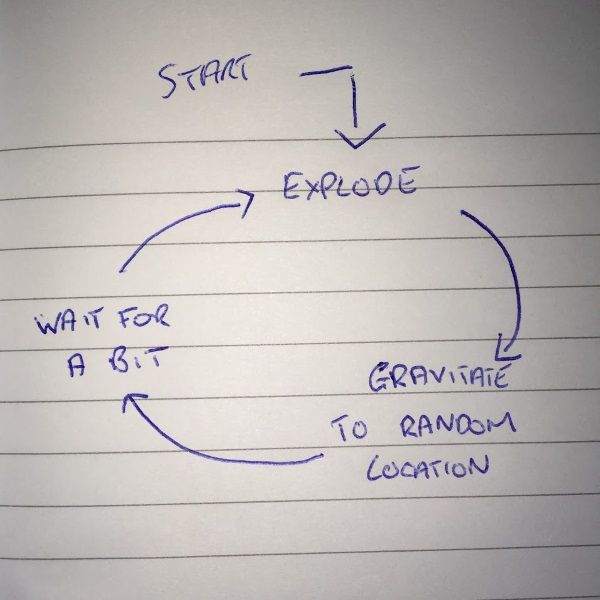 START
EXPLODE
WAIT FOR
A BIT
GRAVITATE
TO RANDOM
LOCATION